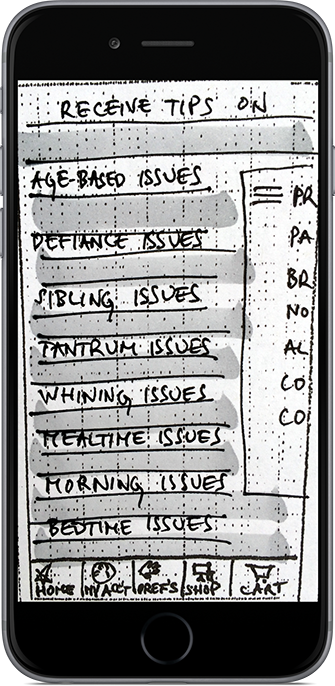 RECEIVE TIPS ON
AGE-BASED ISSUES
DEFIANCE ISSUES
SIBLING ISSUES
TANTRUM ISSUES
WHINING ISSUES
MEALTIME ISSUES
MORNING ISSUES
BEDTIME ISSUES
PR
PA
BR
NO
AL
CO
CO
HOME MY ACCT PREFS SHOP CART